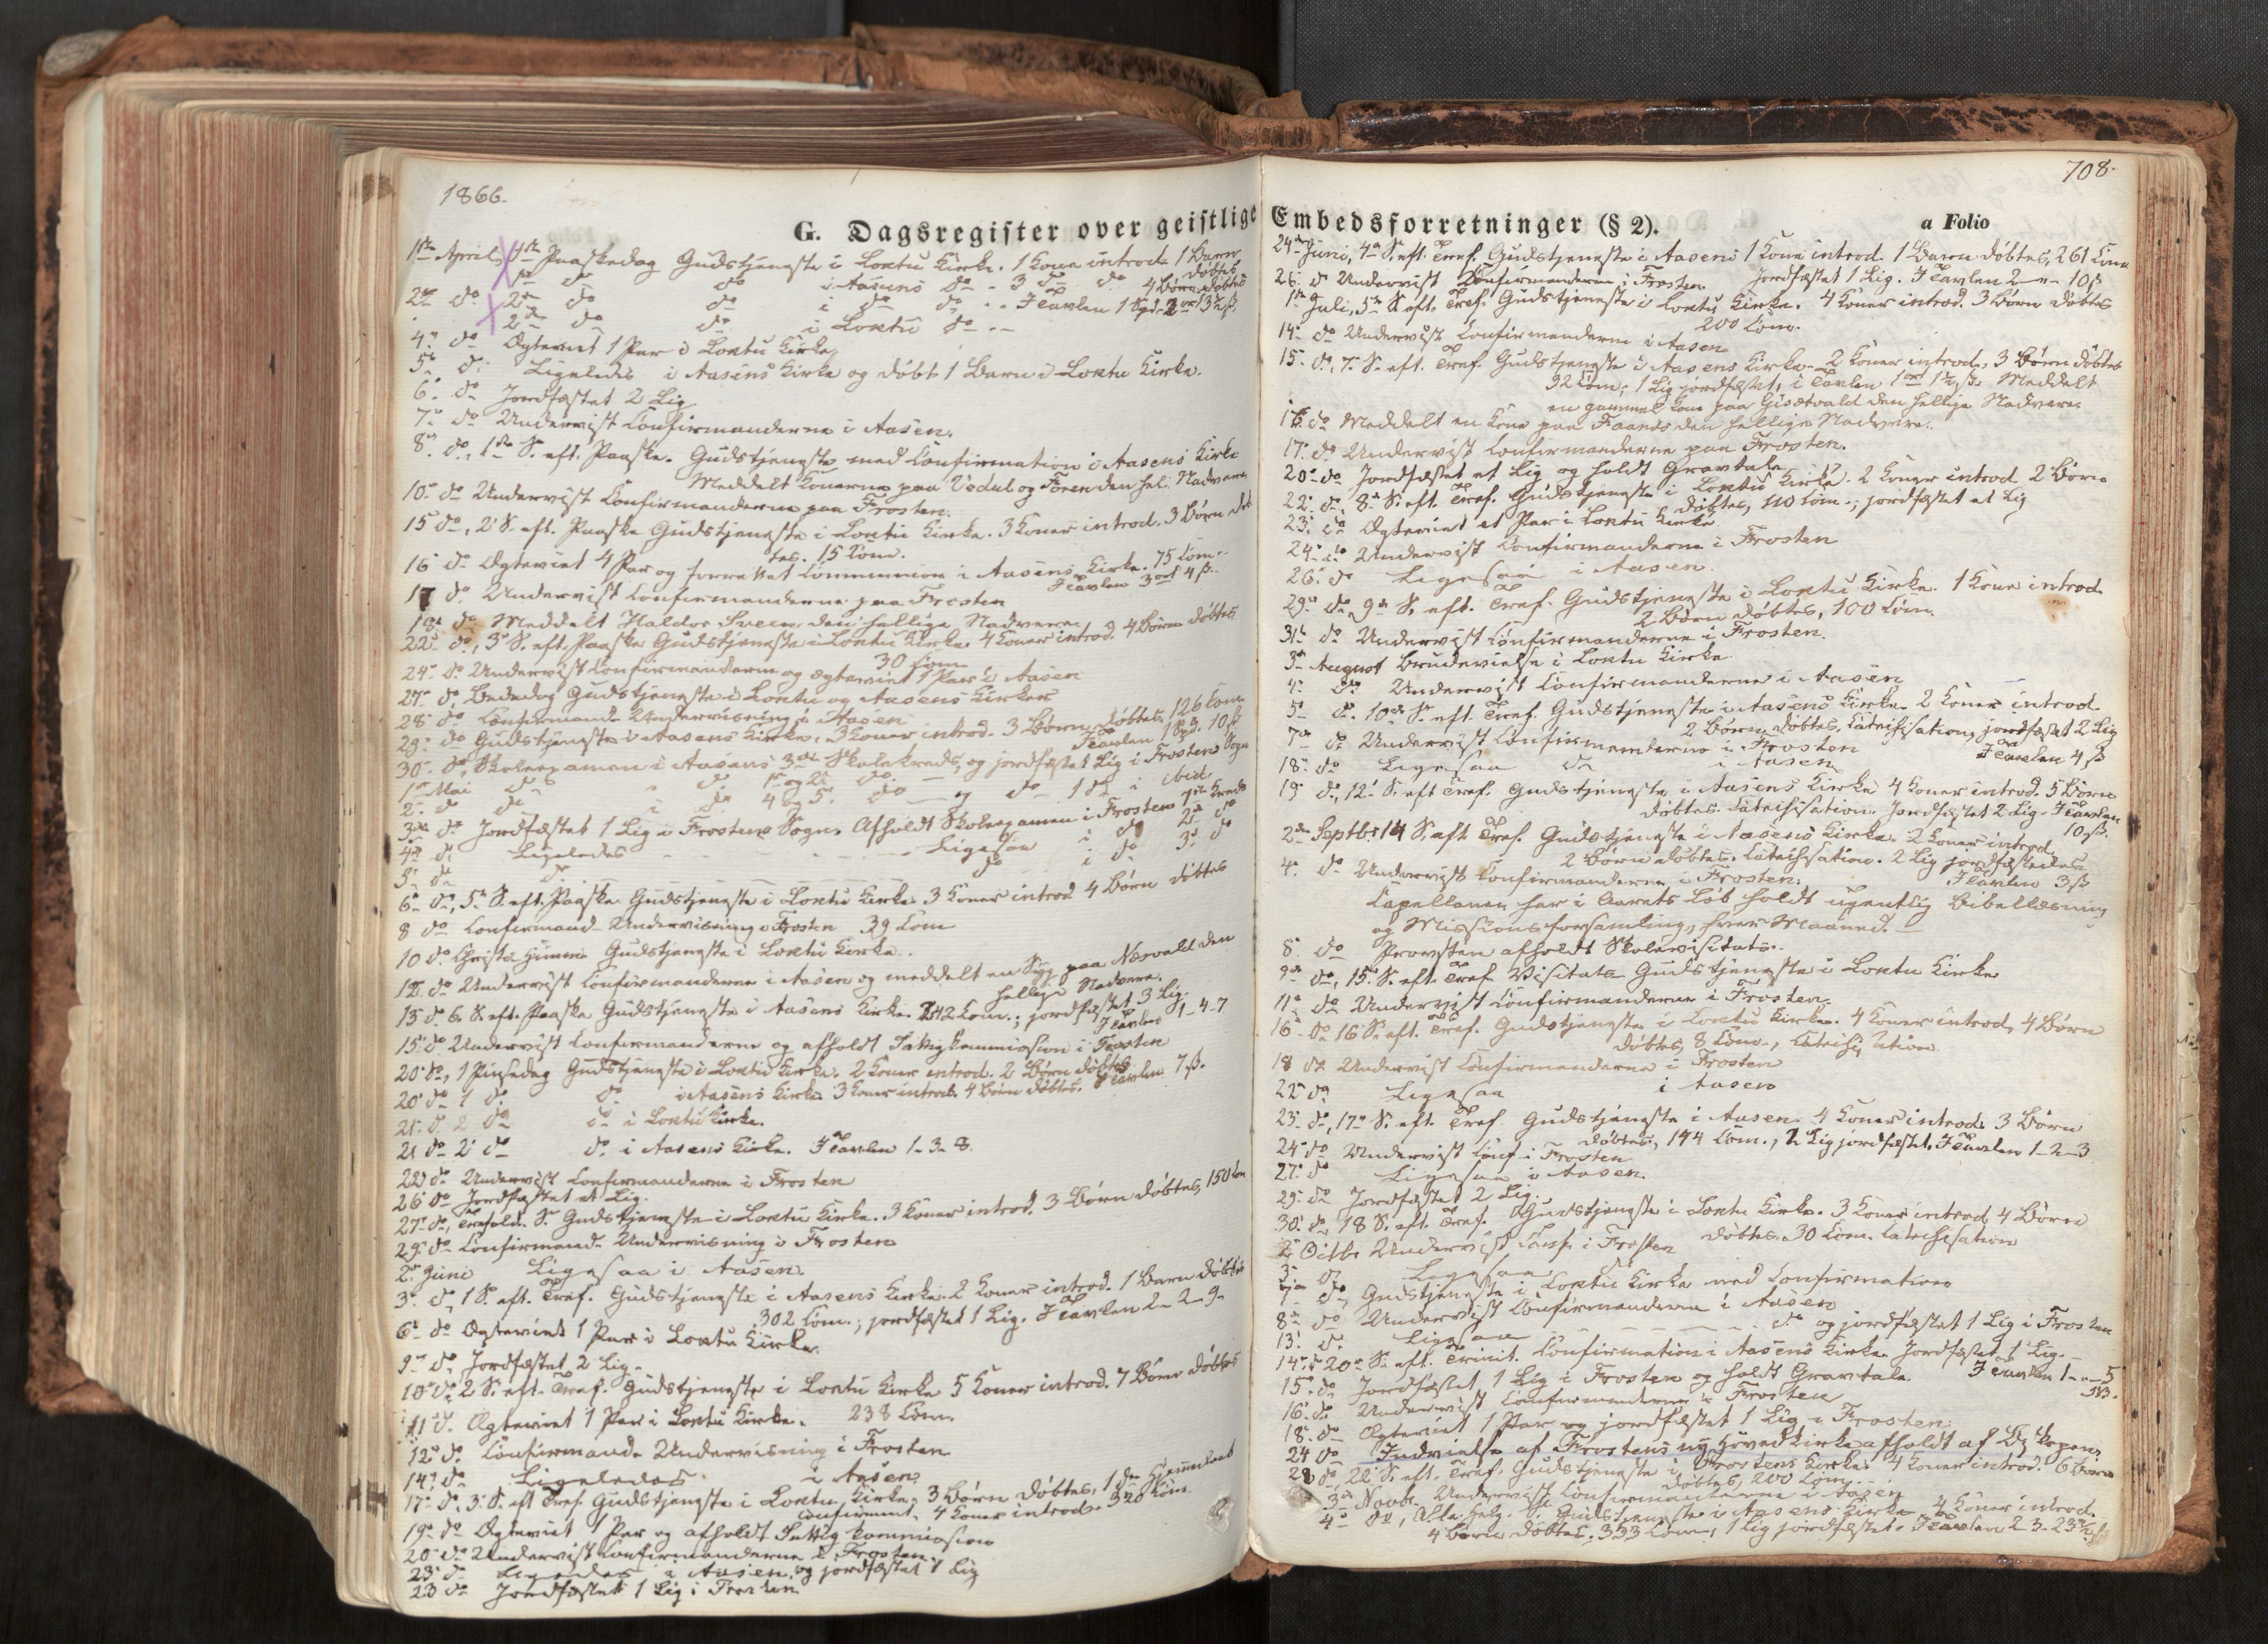 1866.
G. Dagsregister over geistlige
1ste April, 1ste Paaskedag Gudstjeneste i Loxtu Kirke. 1 Kone introd. 1 Barn
døbtes
1ste do do i Aasens do - 3 do do 4 Børn døbtes
2n do 2n do do i do do -- I Tavlen 1 Spd.
2de do do i Loxtu do --
4n do Ægteviet 1 Par i Loxtu Kirke
5t do Ligeledes i Aasens Kirke og døbt 1 Barn i Loxtu Kirke.
6t do Jordfæstet 2 Lig
7n do Underviist Confirmanderne i Aasen.
8n do, 1ste S. eft. Paaske. Gudstjeneste med Confirmation i Aasens Kirke
Meddelt Konerne paa Vedul og Foren den hel. Nadvere
10n do Underviist Confirmanderne paa Frosten.
15 do, 2n S. eft. Paaske Gudstjeneste i Loxtu Kirke. 3 Koner introd. 3 Børn døb
tes. 15 Com.
16 do Ægteviet 4 Par og forrettet Communion i Aasens Kirke. 75 Com..
I Tavlen 3 ort 4 ß.
17 do Underviist Confirmanderne paa Frosten
18n do Meddelt Haldor Sveen den hellige Nadvere.
22n do, 3n S. eft. Paaske Gudstjeneste i Loxtu Kirke 4 Koner introd. 4 Børn døbtes
30 Com
24n do Underviist Confirmanderne og ægteviet 1 Par i Aasen
27n do, Bededag Gudstjeneste i Loxtu og Aasens Kirker
28 do Confirmand-Underviisning i Aasen
29n do Gudstjeneste i Aasens Kirke, 3 Koner introd. 3 Børn døbtes. 126 Com.
I Tavlen 1 Spd. 10 ß
30n do, Skoleexamen i Aasens 3die Skolekreds, og jordfæstet 1 Lig i Frostens Sogn
1ste Mai do i do 1ste og 2n do — og do 1 do i ibid.
2n do do i do 4 og 5n do
3die do Jordfæstet 1 Lig i Frostens Sogn. Afholdt Skoleexamen i Frosten 1ste Kreds
4n do Ligeledes - - - - Ligesaa i do 2n do
5n do do do i do 3n do
6n do, 5n S. eft. Paaske Gudstjeneste i Loxtu Kirke 3 Koner introd 4 Børn døbtes
8 do Confirmand-Underviisning i Frosten 39 Com
10 do Christi Himmelf. Gudstjeneste i Loxtu Kirke..
12. do Underviist Confirmanderne i Aasen og meddelt en Syg paa Næsvald den
hellige Nadvere.
13 do 6. S. eft. Paaske Gudstjeneste i Aasens Kirke. 242 Com.; jordfæstet 3 Lig.
I Tavlen 1-4-7
15n do Underviist Confirmanderne og afholdt Fattigkommission i Frosten
20n do, 1 Pinsedag Gudstjeneste i Loxtu Kirke. 2 Koner introd. 2 Børn døbtes
20n do 1 do do i Aasens Kirke 3 Koner introd. 4 Børn døbtes. I Tavlen 7 ß.
21n do 2 do do i Loxtu Kirke.
21 do 2n do do i Aasens Kirke. I Tavlen 1-3-8.
22n do Underviist Confirmanderne i Frosten
26 do Jordfæstet et Lig.
27n do, Trefold. S. Gudstjeneste i Loxtu Kirke. 3 Koner introd. 3 Børn døbtes, 150 Com
29n do Confirmand-Underviisning i Frosten
2n Juni Ligesaa i Aasen.
3n do, 1 S. eft. Tref. Gudstjeneste i Aasens Kirke. 2 Koner introd. 1 Barn døbtes
302 Com.; jordfæstet 1 Lig. I Tavlen 2-2-9-
6n do Ægteviet 1 Par i Loxtu Kirke.
9n do Jordfæstet 2 Lig.
10n do 2 S. eft. Tref. Gudstjeneste i Loxtu Kirke 5 Koner introd. 7 Børn døbtes
238 Com.
11 do Ægteviet 1 Par i Loxtu Kirke.
12n do Confirmand-Underviisning i Frosten
14n do Ligeledes i Aasen.
17n do, 3n S. eft Tref. Gudstjeneste i Loxtu Kirke, 3 Børn døbtes, 1 do Hjemmedøbt
confirmeret. 4 Koner introd. 320 Com.
19n do Ægteviet 1 Par og afholdt Fattigkommission
20n do Underviist Confirmanderne i Frosten.
23n do Ligeledes i Aasen, og jordfæstet 1 Lig
23 do Jordfæstet 1 Lig i Frosten
708.
Embedsforretninger (§ 2). a Folio
24de Juni, 4n S. eft. Tref. Gudstjeneste i Aasens 1 Kone introd. 1 Barn døbtes, 261 Com
Jordfæstet 1 Lig. I Tavlen 2-"-10 ß
26. do Underviist Confirmanderne i Frosten
1ste Juli, 5te S. eft. Tref. Gudstjeneste i Loxtu Kirke. 4 Koner introd. 3 Børn døbtes
200 Com.
14n do Underviist Confirmanderne i Aasen
15n do, 7n S. eft. Tref. Gudstjeneste i Aasens Kirke. 2 Koner introd. 3 Børn døbtes
92 Com; 1 Lig jordfæstet, i Tavlen 1 ort 1½ ß. Meddelt
en gammel Kone paa Gisetvald den hellige Nadvere.
16 do Meddelt en Kone paa Faanes den hellige Nadvere.
17n do Underviist Confirmanderne paa Frosten.
20n do Jordfæstet et Lig og holdt Gravtale
22n do, 8n S. eft. Tref. Gudstjeneste i Loxtu Kirke. 2 Koner introd. 2 Børn
døbtes, 110 Com.; jordfæstet et Lig
23n do Ægteviet et Par i Loxtu Kirke
24n do Underviist Confirmanderne i Frosten
26n do Ligesaa i Aasen.
29n do, 9n S. eft. Tref. Gudstjeneste i Loxtu Kirke. 1 Kone introd.
2 Børn døbtes, 100 Com.
31te do Underviist Confirmanderne i Frosten.
3die August Brudevielse i Loxtu Kirke.
4n do Underviist Confirmanderne i Aasen
5n do. 10de S. eft. Tref. Gudstjeneste i Aasens Kirke. 2 Koner introd.
2 Børn døbtes, Catechisation, jordfæstet 2 Lig
7de do Underviist Confirmanderne i Frosten I Tavlen 4 ß
18n do Ligesaa do i Aasen
19n do, 12n S. eft Tref. Gudstjeneste i Aasens Kirke 4 Koner introd. 5 Børn
døbtes. Catechisation. Jordfæstet 2 Lig. I Tavlen
10 ß.
2den Septbr. 14 S. eft Tref. Gudstjeneste i Aasens Kirke. 2 Koner introd.
2 Børn døbtes. Catechisation. 2 Lig jordfæstedes
I Tavlen 3 ß
4n do Underviist Confirmanderne i Frosten.
Capellanen har i Aarets Løb holdt ugentlig Bibellæsning
og Missionsforsamling hver Maaned.
8n do Provsten afholdt Skolevisitats.
9de do, 15n S. eft Tref Visitats-Gudstjeneste i Loxtu Kirke
11n do Underviist Confirmanderne i Frosten.
16n do 16n S. eft. Tref. Gudstjeneste i Loxtu Kirke. 4 Koner introd, 4 Børn
døbtes, 8 Com., Catechisation
18 do Underviist Confirmanderne i Frosten
22n do Ligesaa i Aasen
23n do, 17n S. eft. Tref. Gudstjeneste i Aasen 4 Koner introd. 3 Børn
døbtes, 144 Com., 2 Lig jordfæstet. I Tavlen 1-2-3
24n do Underviist Conf i Frosten
27n do Ligesaa i Aasen.
29n do Jordfæstet 2 Lig.
30n do, 18 S. eft. Tref. Gudstjeneste i Loxtu Kirke. 3 Koner introd. 4 Børn
døbtes. 30 Com. Catechisation
2n Octbr. Underviist Conf. i Frosten
3n do Ligesaa do
7n do, Gudstjeneste i Loxtu Kirke med Confirmation
8n do Underviist Confirmanderne i Aasen
13n do Ligesaa do og jordfæstet 1 Lig i Frosten
14n do 20n S. eft. Trinit. Confirmation i Aasens Kirke. Jordfæstet 1 Lig.
15n do Jordfæstet 1 Lig i Frosten og holdt Gravtale. I Tavlen 1-"-5
16n do Underviist Confirmanderne i Frosten
18n do Ægteviet 1 Par og jordfæstet 1 Lig i Frosten.
24 do Indvielse af Frostens ny Hovedkirke afholdt af Biskopen.
28 do, 22 S. eft. Tref. Gudstjeneste i Frostens Kirke. 4 Koner introd. 6 Børn
døbtes, 200 Com.
3die Novbr. Underviist Confirmanderne i Aasen
4n do, Alle Helg. S. Gudstjeneste i Aasens Kirke 4 Koner introd.
4 Børn døbtes. 333 Com; 1 Lig jordfæstet. I Tavlen 2-3-23